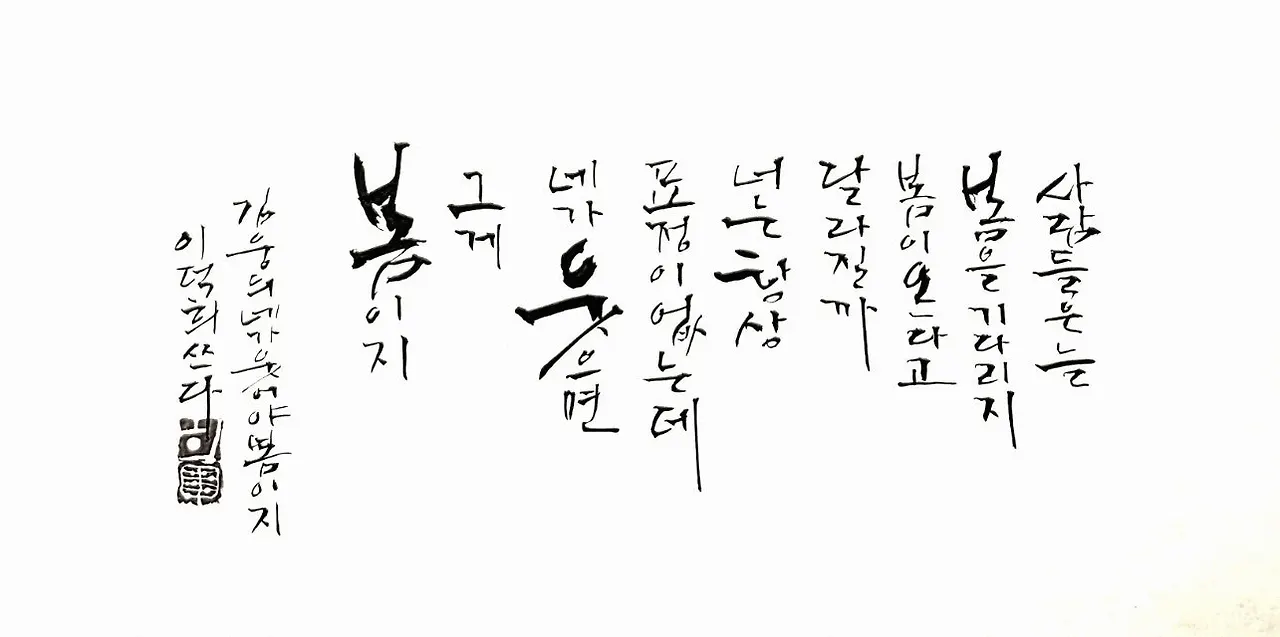 사람들은 늘
봄을 기다리지
봄이 온다고
달라질까
너는 항상
표정이 없는데
네가 웃으면
그게
봄이지
김웅의 네가 웃어야 봄이지
이덕희 쓰다